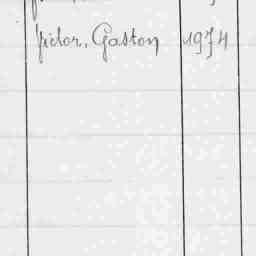 pictor, Gaston 1974